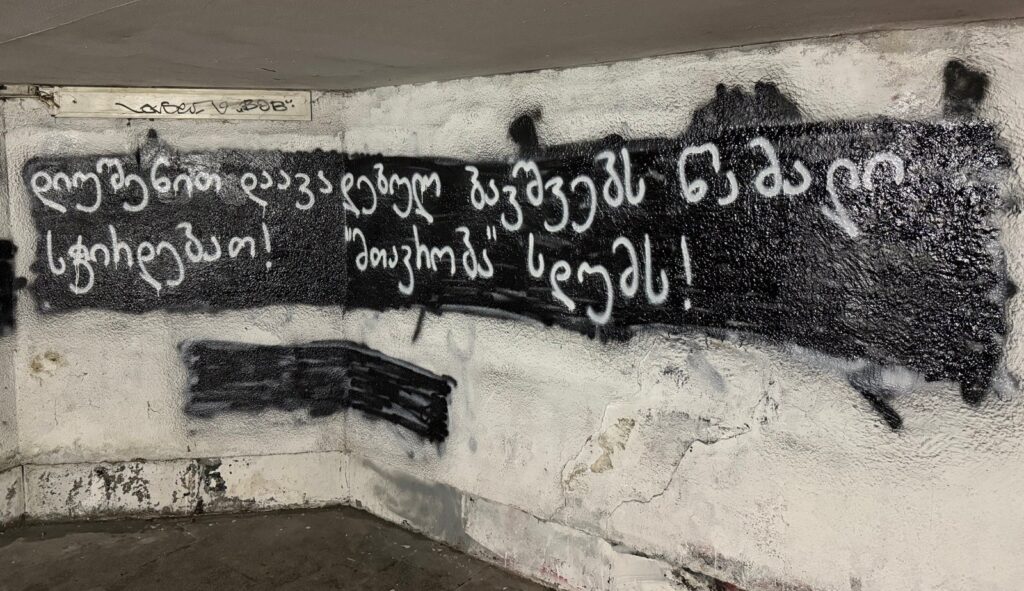 დიუშენით დაავადებულ ბავშვებს წამალი
სჭირდებათ! "მთავრობა" სდუმს!